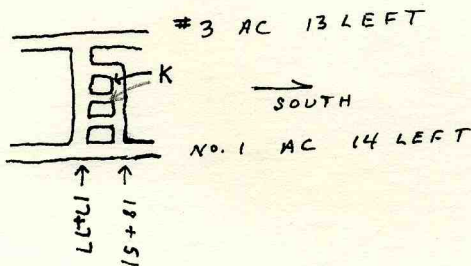 #3 AC 13 LEFT
K
SOUTH
NO. 1 AC 14 LEFT
17+77
18+51